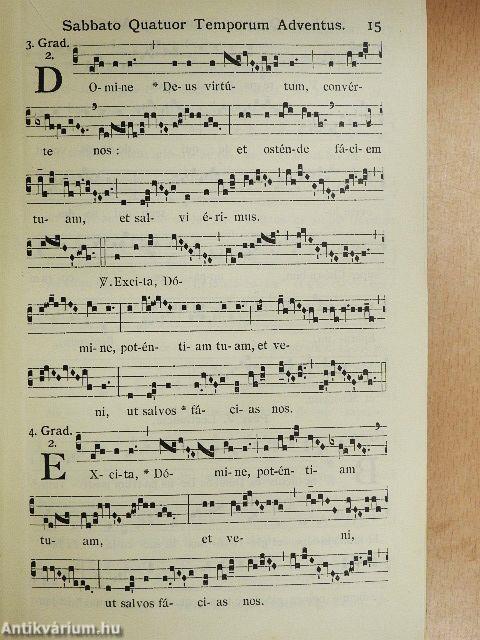 Sabbato Quatuor Temporum Adventus. 15
3. Grad.
2.
DO-mi-ne * De-us virtú- tum, convér-
te nos : et osténde fáciem
tu- am, et sal- vi é-ri-mus.
℣. Exci-ta, Dó-
mi-ne, potén- ti-am tu-am, et ve-
ni, ut salvos * fá- ci-as nos.
4. Grad.
2.
EX-ci-ta, * Dó- mi-ne, potén- ti- am
tu- am, et ve- ni,
ut salvos fá- ci- as nos.
Antikvárium.hu